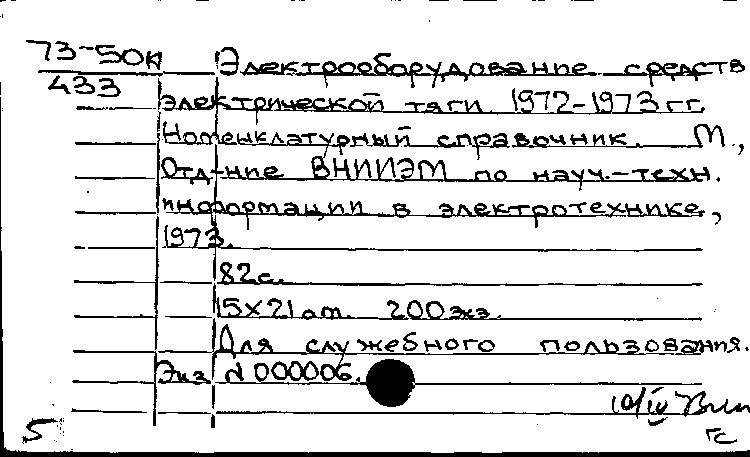 73-50к
433
Электрооборудование средств
электрической тяги 1972-1973 гг.
Номенклатурный справочник. М.,
Отд-ние ВНИИЭМ по науч.-техн.
информации в электротехнике,
1973.
82с.
15х21 от. 200 экз.
Для служебного пользования.
Экз N 000006.
10/IV
5 гс